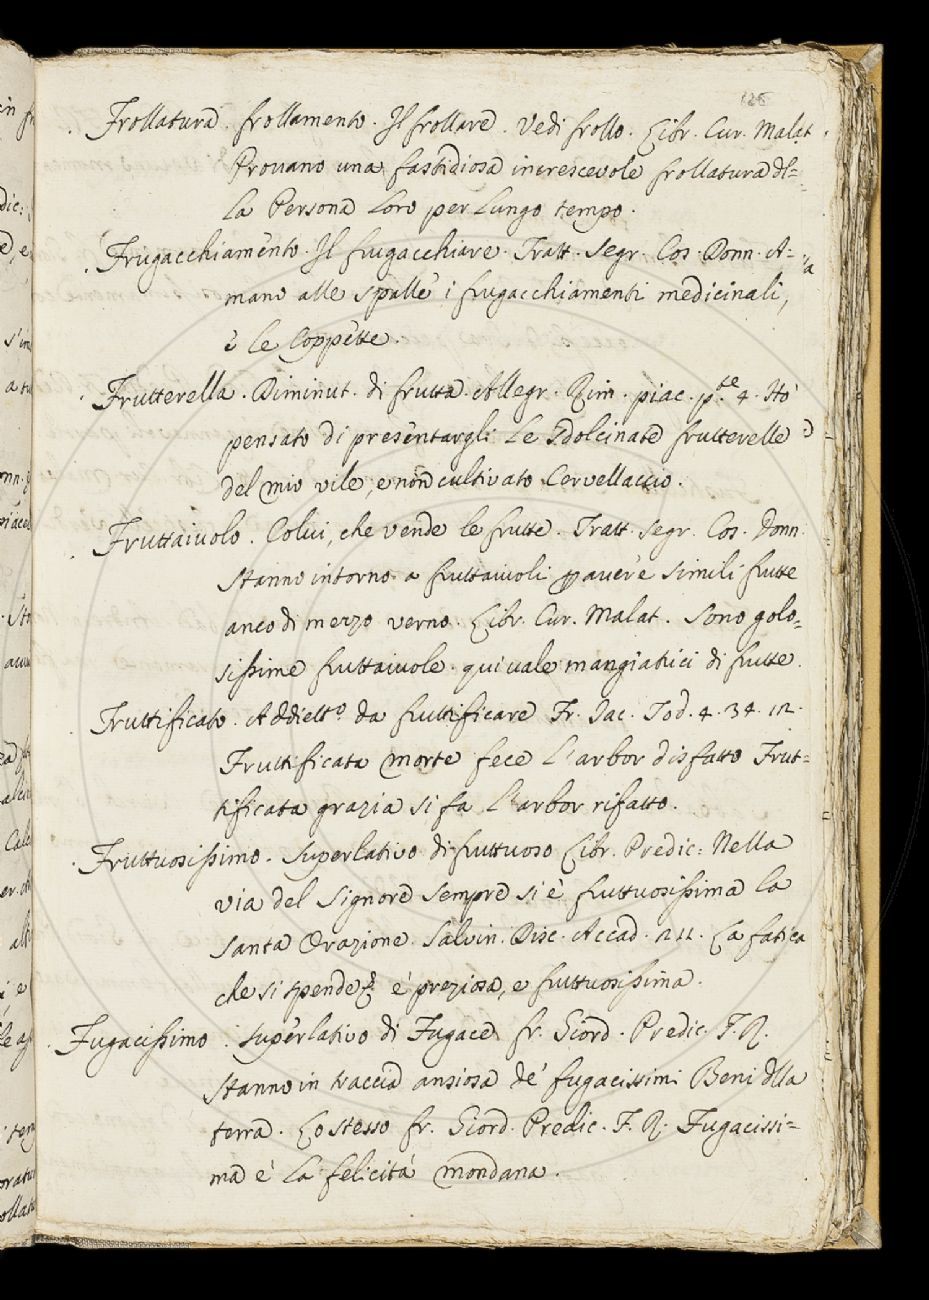 126
. Frollatura . frollamento . Il frollare . Vedi frollo . Libr. Cur. Malat .
Provano una fastidiosa increscevole frollatura del=
la Persona loro per lungo tempo .
. Frugacchiamento . Il frugacchiare . Tratt. Segr. Cos. Donn. A=
mano alle spalle i frugacchiamenti medicinali,
è le Coppette .
. Frutterella . Diminut. di frutta . Allegr. Rim. piac. p.te 4. Hò
pensato di presentargli le Idolcinate frutterelle
del mio vile, e non cultivato Cervellaccio .
. Fruttaiuolo . Colui, che vende le frutte . Tratt. Segr. Cos. Donn.
Stanno intorno a fruttaiuoli p avere simili frutte
anco di mezzo verno . Libr. Cur. Malat . Sono golo=
sissime fruttaiuole . qui vale mangiatrici di frutte .
Fruttificato . Addiett.o da fruttificare Fr. Iac. Tod. 4. 34. 12.
Fruttificata morte fece l'arbor disfatto Frut=
tificata grazia si fa l'arbor rifatto .
. Fruttuosissimo . Superlativo di fruttuoso Libr. Predic: Nella
via del Signore sempre si è fruttuosissima la
Santa Orazione . Salvin. Disc. Accad. 211. La fatica
che si spende è preziosa, e fruttuosissima .
. Fugacissimo . Superlativo di Fugace fr. Giord. Predic. F. R.
Stanno in traccia ansiosa de' fugacissimi Beni dlla
terra . Lo stesso fr. Giord. Predic. F. R. Fugacissi=
ma è la felicità mondana .